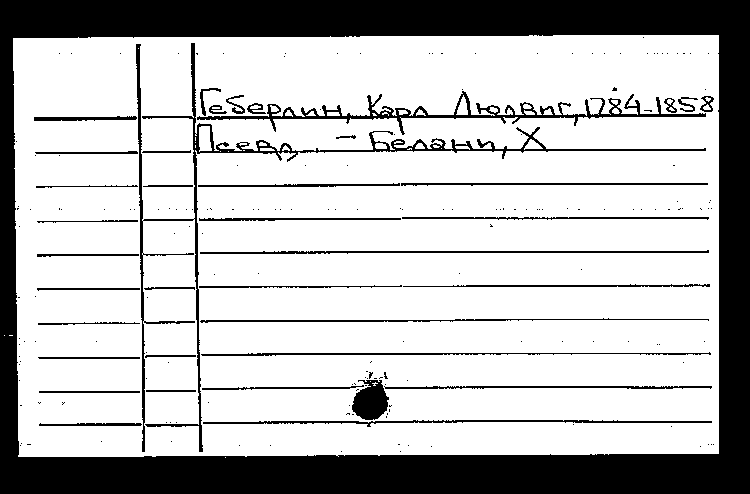 Геберлин, Карл Людвиг, 1784-1858
Псевд. - Белани, Х